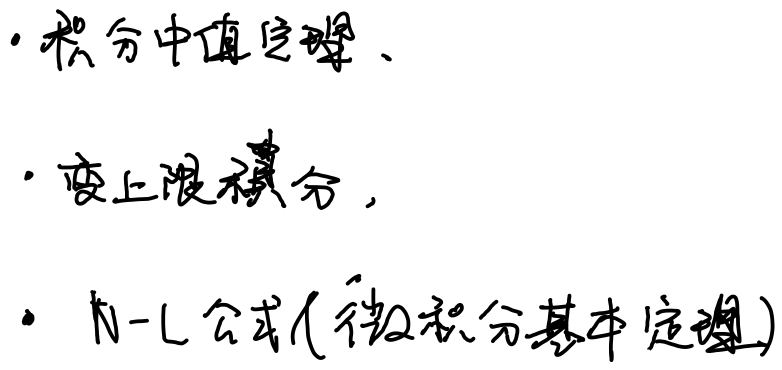 · 积分中值定理、
· 变上限積分,
· N-L公式(微积分基本定理)